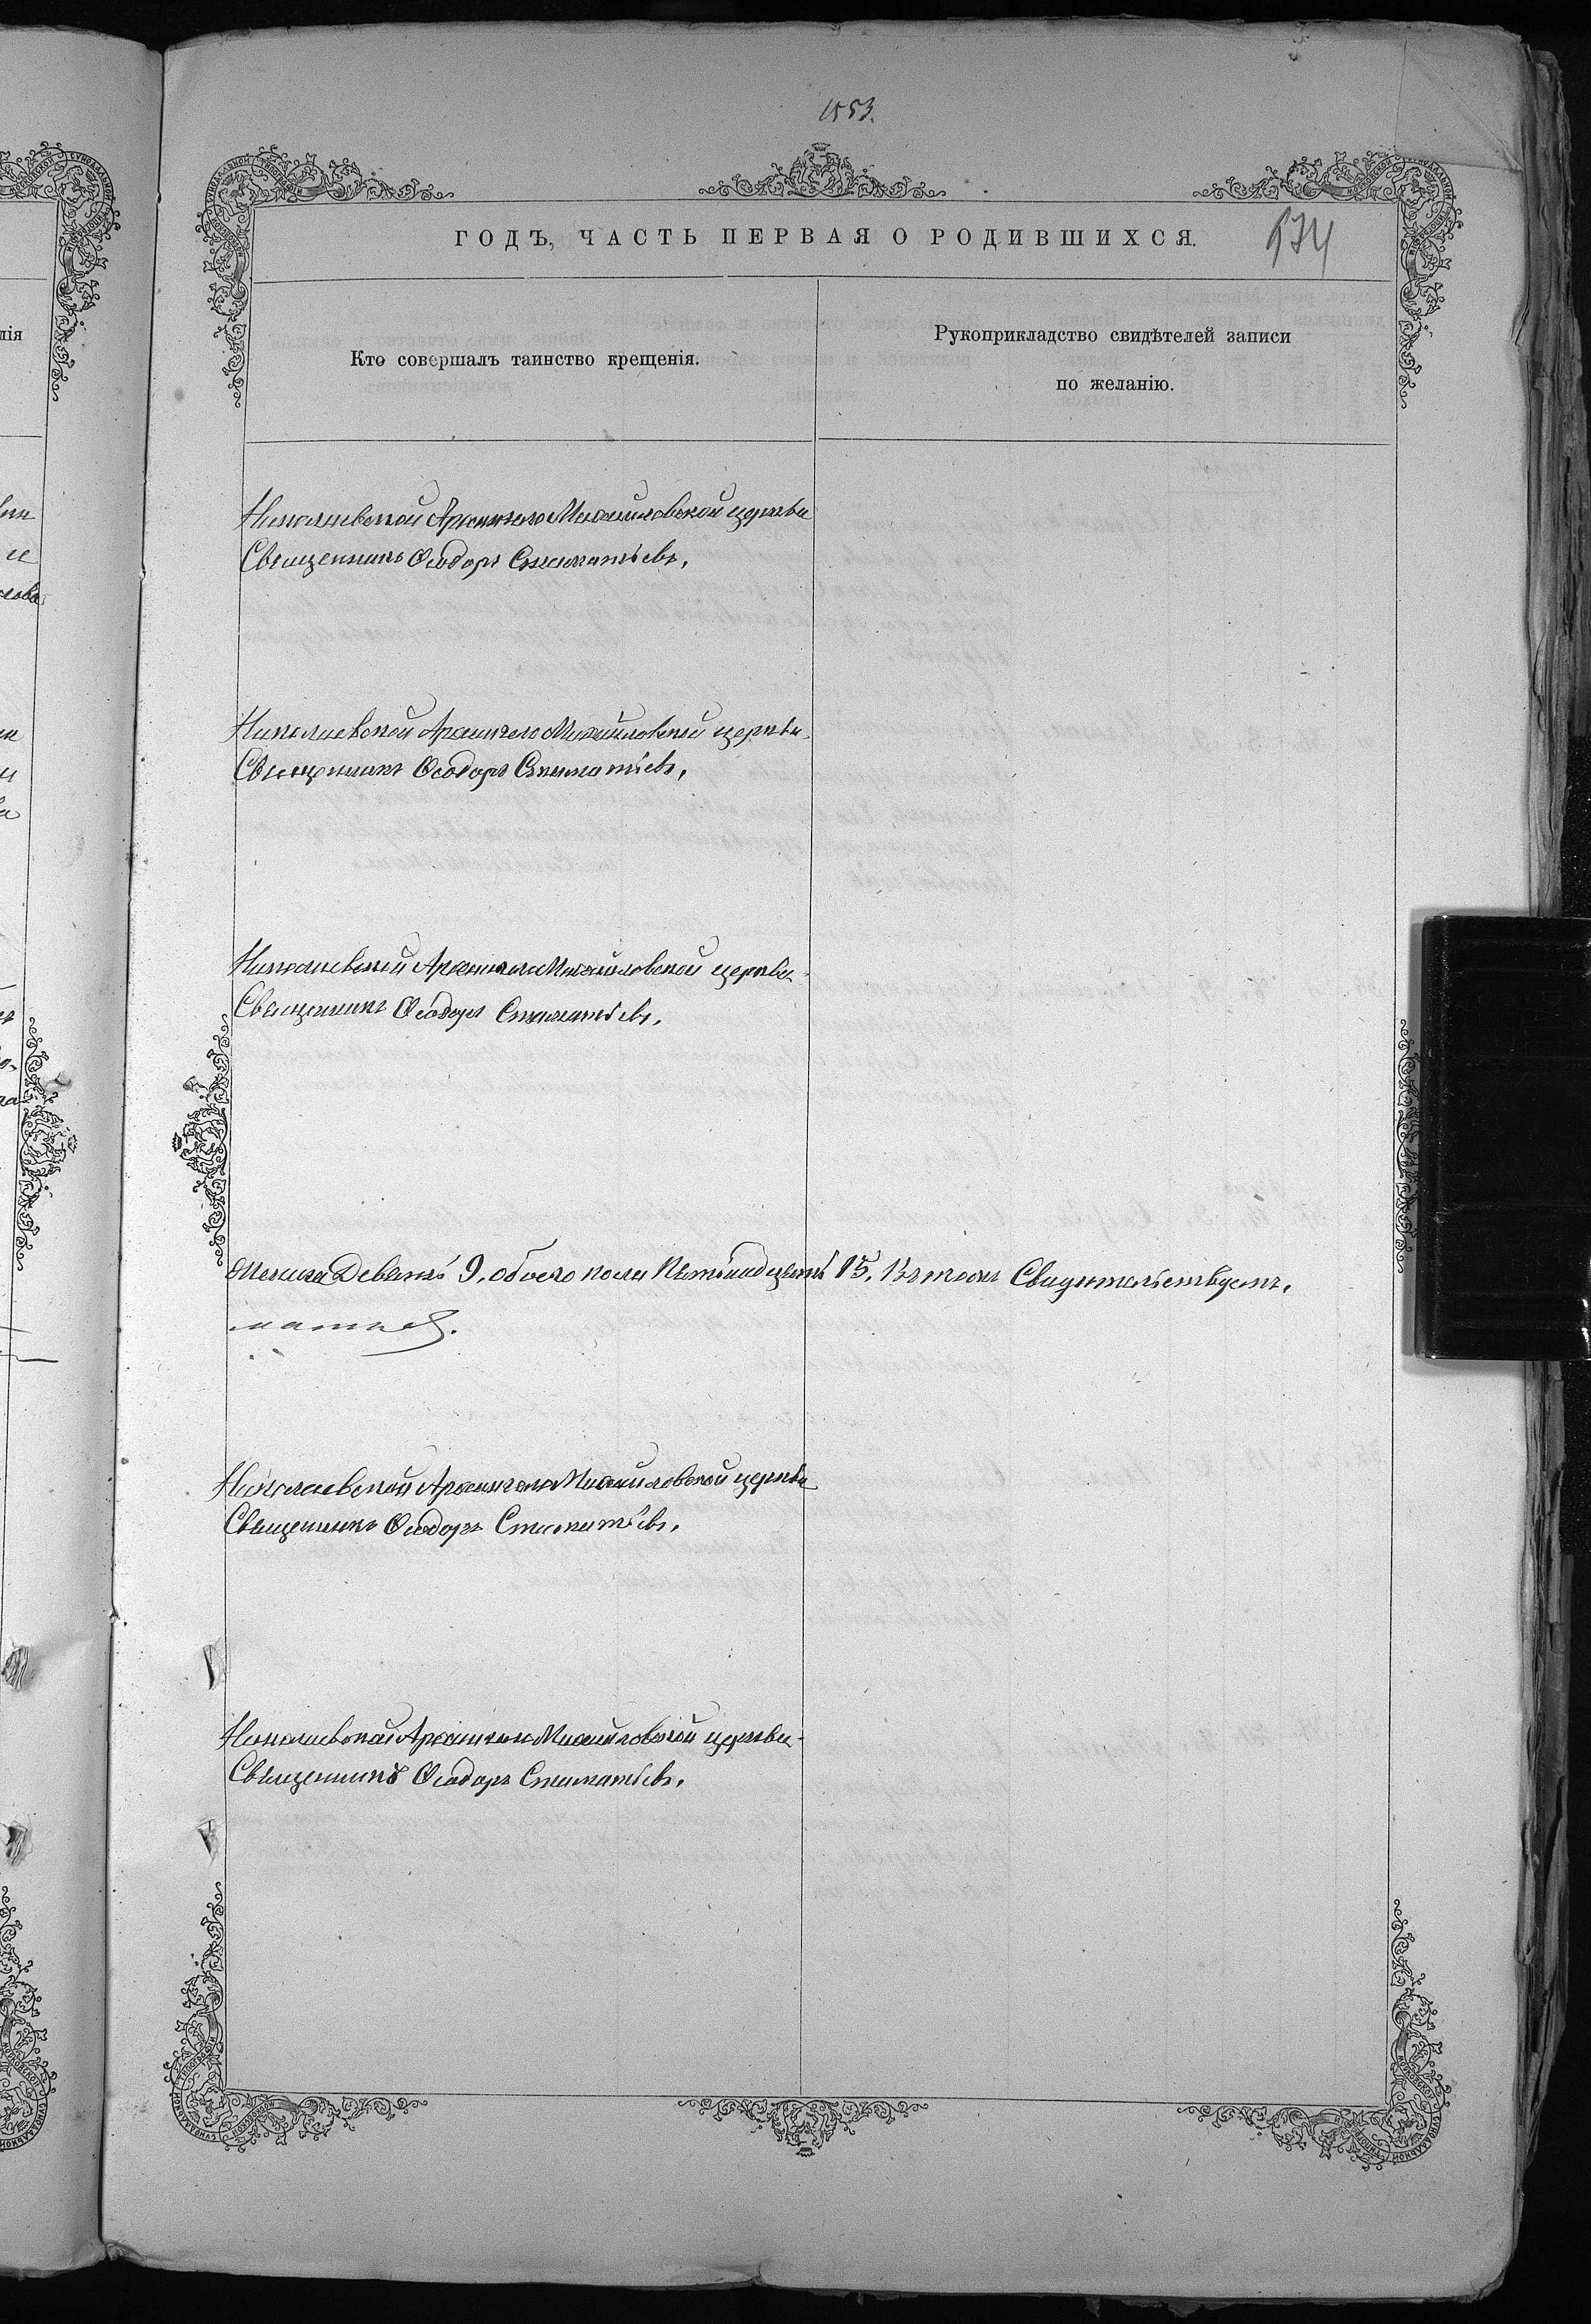 1553.
ГОДЪ, ЧАСТЬ ПЕРВАЯ О РОДИВШИХСЯ.
574
Кто совершалъ таинство крещенія.
Рукоприкладство свидѣтелей записи
по желанію.
Николаевской Архангело Михайловской церкви
Священникъ Ѳеодоръ Стаматьевъ.
Николаевской Архангело Михайловской церкви
Священникъ Ѳеодоръ Стаматьевъ.
Николаевской Архангело Михайловской церкви
Священникъ Ѳеодоръ Стаматьевъ.
Женска Девять 9, обоего пола Пятьнадцать 15. Въ томъ Свидѣтельствуемъ.
Николаевской Архангело Михайловской церкви
Священникъ Ѳеодоръ Стаматьевъ.
Николаевской Архангело Михайловской церкви
Священникъ Ѳеодоръ Стаматьевъ.